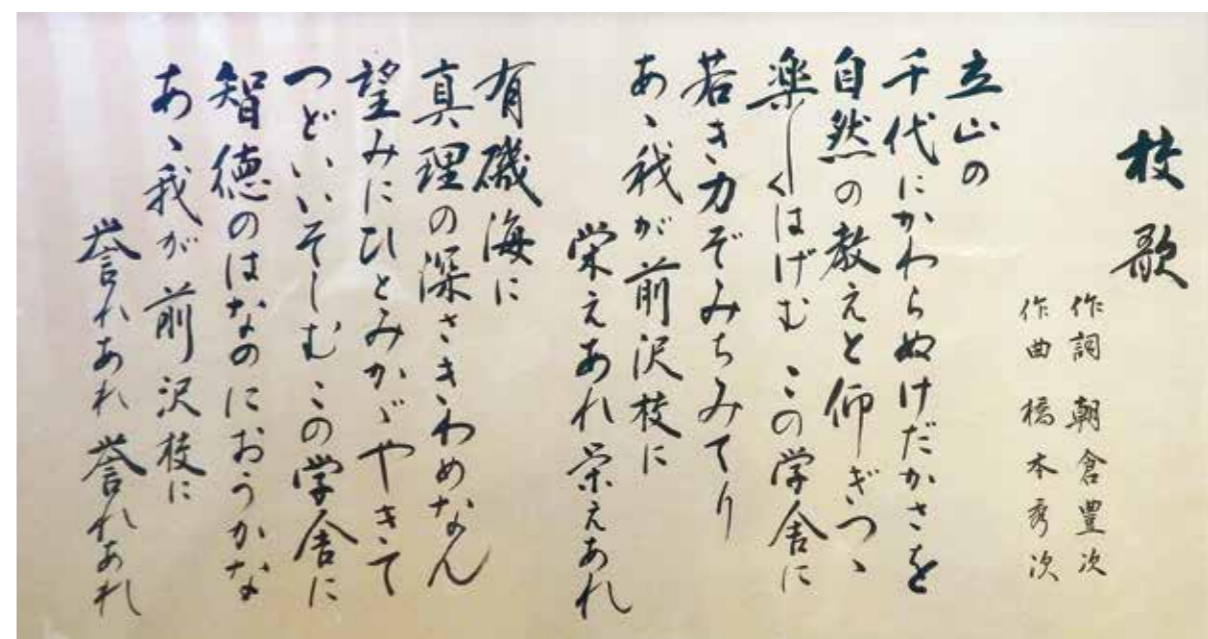 校歌
作詞 朝倉豊次
作曲 橋本秀次
立山の
千代にかわらぬけだかさを
自然の教えと仰ぎつゝ
楽しくはげむ この学舎に
若き力ぞみちみてり
あゝ我が前沢校に
栄えあれ栄えあれ
有磯海に
真理の深さきわめなん
望みにひとみかゞやきて
つどいいそしむ この学舎に
智徳のはなのにおうかな
あゝ我が前沢校に
誉れあれ 誉れあれ